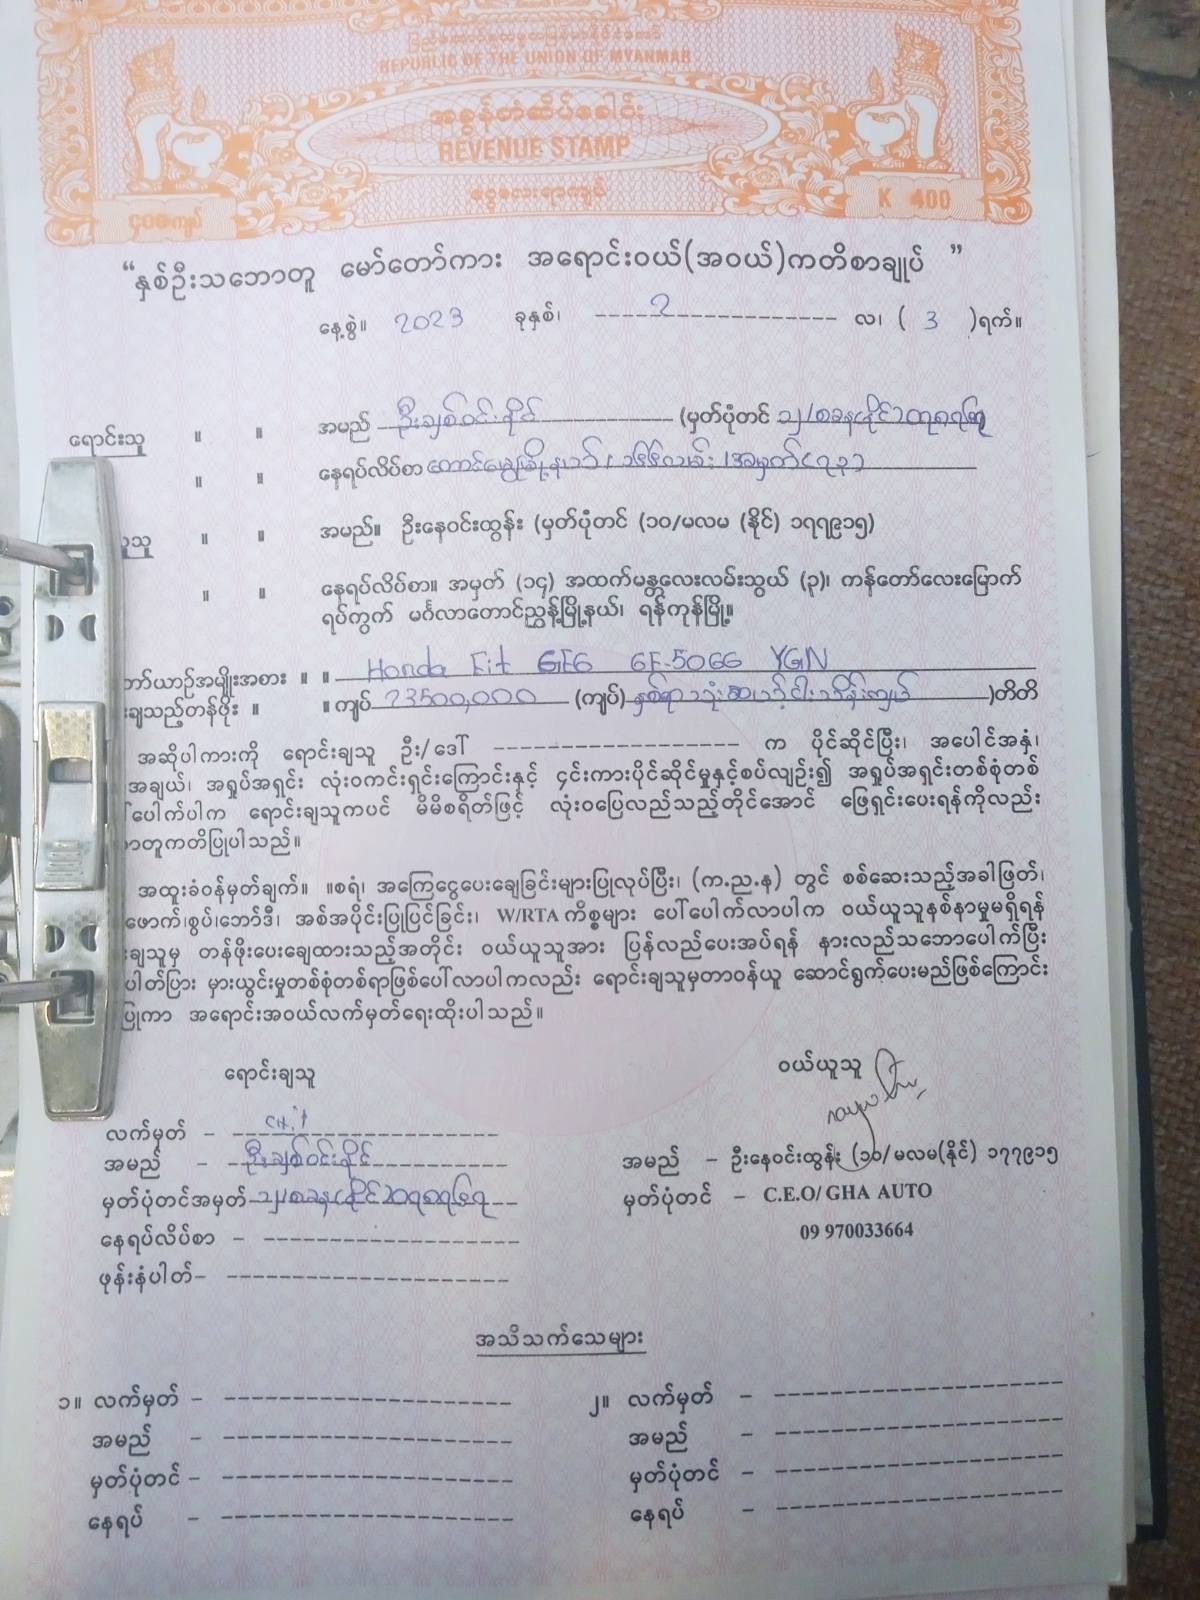 REPUBLIC OF THE UNION OF MYANMAR
အခွန်တံဆိပ်ခေါင်း
REVENUE STAMP
ငွေလေးရာကျပ်
၄၀၀ကျပ်
K 400
“နှစ်ဦးသဘောတူ မော်တော်ကား အရောင်းဝယ်(အဝယ်)ကတိစာချုပ် ”
နေ့စွဲ။ 2023 ခုနှစ်၊ 2 လ၊ ( 3 )ရက်။
ရောင်းသူ ။ ။ အမည် ဦးချစ်ဝင်းနိုင် (မှတ်ပုံတင်
။ ။ နေရပ်လိပ်စာ
ယူသူ ။ ။ အမည်။ ဦးနေဝင်းထွန်း (မှတ်ပုံတင် (၁၀/မလမ (နိုင်) ၁၇၇၉၁၅)
။ ။ နေရပ်လိပ်စာ။ အမှတ် (၁၄) အထက်မန္တလေးလမ်းသွယ် (၃)၊ ကန်တော်လေးမြောက်
ရပ်ကွက် မင်္ဂလာတောင်ညွန့်မြို့နယ်၊ ရန်ကုန်မြို့။
ဘာ်ယာဉ်အမျိုးအစား ။ ။ Honda Fit GE6 6F-5066 YGN
းချသည့်တန်ဖိုး ။ ။ကျပ် 23500,000 (ကျပ်) နှစ်ရာသုံးဆယ့်ငါးသိန်းကျပ် )တိတိ
အဆိုပါကားကို ရောင်းချသူ ဦး/ဒေါ် က ပိုင်ဆိုင်ပြီး၊ အပေါင်အနှံ၊
အချယ်၊ အရှုပ်အရှင်း လုံးဝကင်းရှင်းကြောင်းနှင့် ၄င်းကားပိုင်ဆိုင်မှုနှင့်စပ်လျဉ်း၍ အရှုပ်အရှင်းတစ်စုံတစ်
ပေါက်ပါက ရောင်းချသူကပင် မိမိစရိတ်ဖြင့် လုံးဝပြေလည်သည့်တိုင်အောင် ဖြေရှင်းပေးရန်ကိုလည်း
ာတူကတိပြုပါသည်။
အထူးခံဝန်မှတ်ချက်။ ။စရံ၊ အကြေငွေပေးချေခြင်းများပြုလုပ်ပြီး၊ (က.ည.န) တွင် စစ်ဆေးသည့်အခါဖြတ်၊
ဖောက်၊စွပ်၊ဘော်ဒီ၊ အစ်အပိုင်းပြုပြင်ခြင်း၊ W/RTA ကိစ္စများ ပေါ်ပေါက်လာပါက ဝယ်ယူသူနစ်နာမှုမရှိရန်
းချသူမှ တန်ဖိုးပေးချေထားသည့်အတိုင်း ဝယ်ယူသူအား ပြန်လည်ပေးအပ်ရန် နားလည်သဘောပေါက်ပြီး
ပါတ်ပြား မှားယွင်းမှုတစ်စုံတစ်ရာဖြစ်ပေါ်လာပါကလည်း ရောင်းချသူမှတာဝန်ယူ ဆောင်ရွက်ပေးမည်ဖြစ်ကြောင်း
ပြုကာ အရောင်းအဝယ်လက်မှတ်ရေးထိုးပါသည်။
ရောင်းချသူ
ဝယ်ယူသူ
လက်မှတ် –
အမည် – ဦးချစ်ဝင်းနိုင်
မှတ်ပုံတင်အမှတ်–
နေရပ်လိပ်စာ –
ဖုန်းနံပါတ်–
အမည် – ဦးနေဝင်းထွန်း (၁၀/မလမ(နိုင်) ၁၇၇၉၁၅
မှတ်ပုံတင် – C.E.O/ GHA AUTO
09 970033664
အသိသက်သေများ
၁။ လက်မှတ် –
အမည် –
မှတ်ပုံတင် –
နေရပ် –
၂။ လက်မှတ် –
အမည် –
မှတ်ပုံတင် –
နေရပ် –